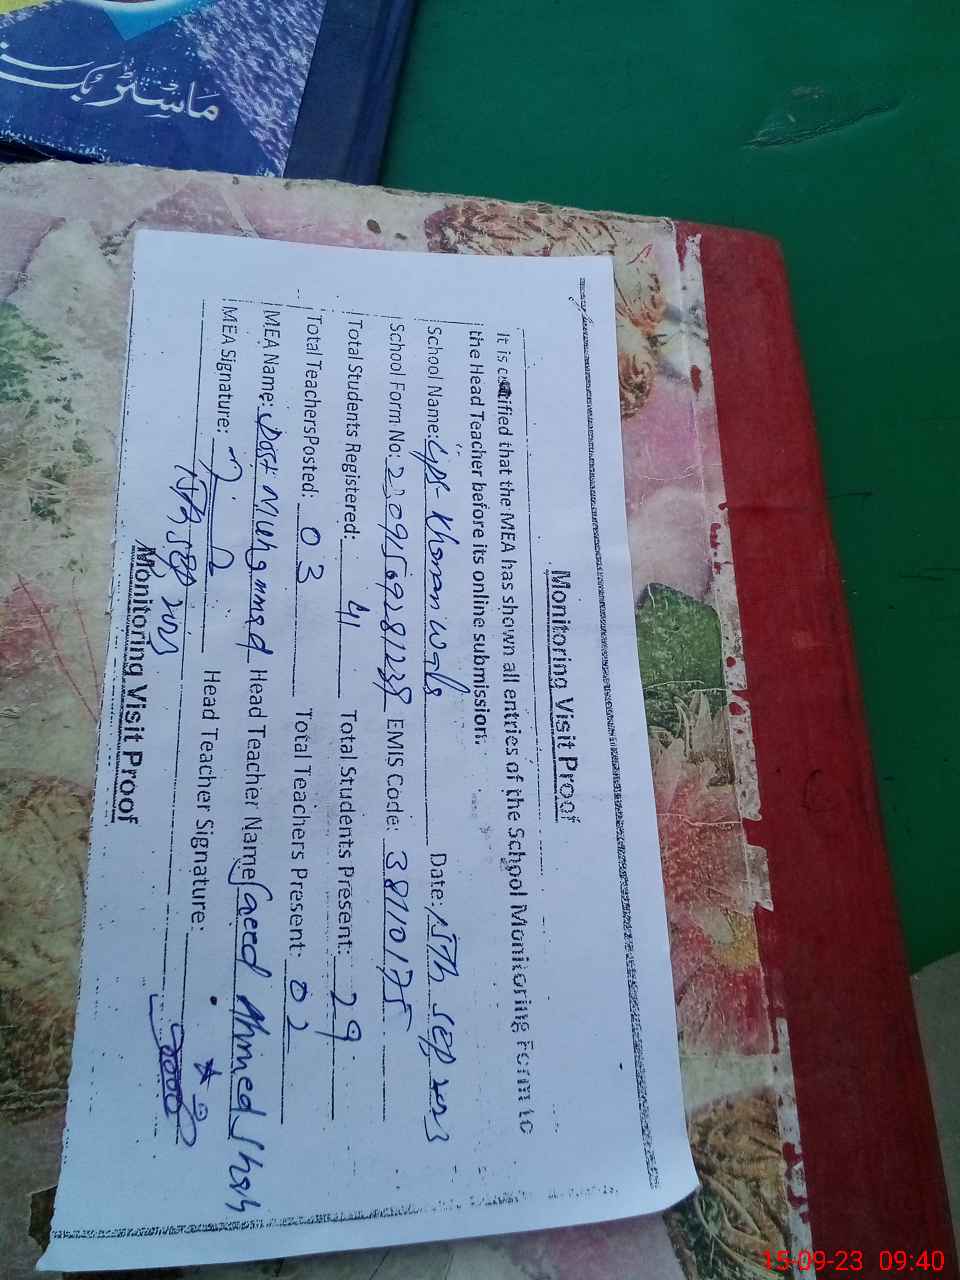 ماسٹر بک
Monitoring Visit Proof
It is certified that the MEA has shown all entries of the School Monitoring Form to
the Head Teacher before its online submission.
School Name: Date: 15th SEP 2023
School Form No: EMIS Code: 38110175
Total Students Registered: 41 Total Students Present: 29
Total Teachers Posted: 03 Total Teachers Present: 02
MEA Name: Dost Muhammad Head Teacher Name Saeed Ahmed Shah
MEA Signature: Head Teacher Signature:
15th SEP 2023
Monitoring Visit Proof
15-09-23 09:40